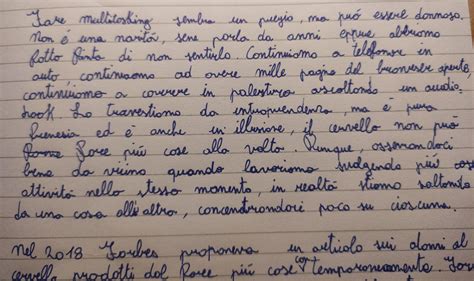 Fare multitasking sembra un pregio, ma può essere dannoso.
Non è una novità, sene parla da anni eppure abbiamo
fatto finta di non sentirlo. Continuiamo a telefonare in
auto, continuiamo ad avere mille pagine del browser aperte,
continuiamo a correre in palestra ascoltando un audio-
book. Lo travestiamo da intraprendenza, ma è pura
frenesia ed è anche un'illusione, il cervello non può
fare più cose alla volta. Dunque, osservandoci
bene da vicino quando lavoriamo svolgendo più cose
attività nello stesso momento, in realtà stiamo saltando
da una cosa all'altra, concentrandoci poco su ciascuna.
Nel 2018 Forbes proponeva un articolo sui danni al
cervello prodotti dal fare più cose contemporaneamente.